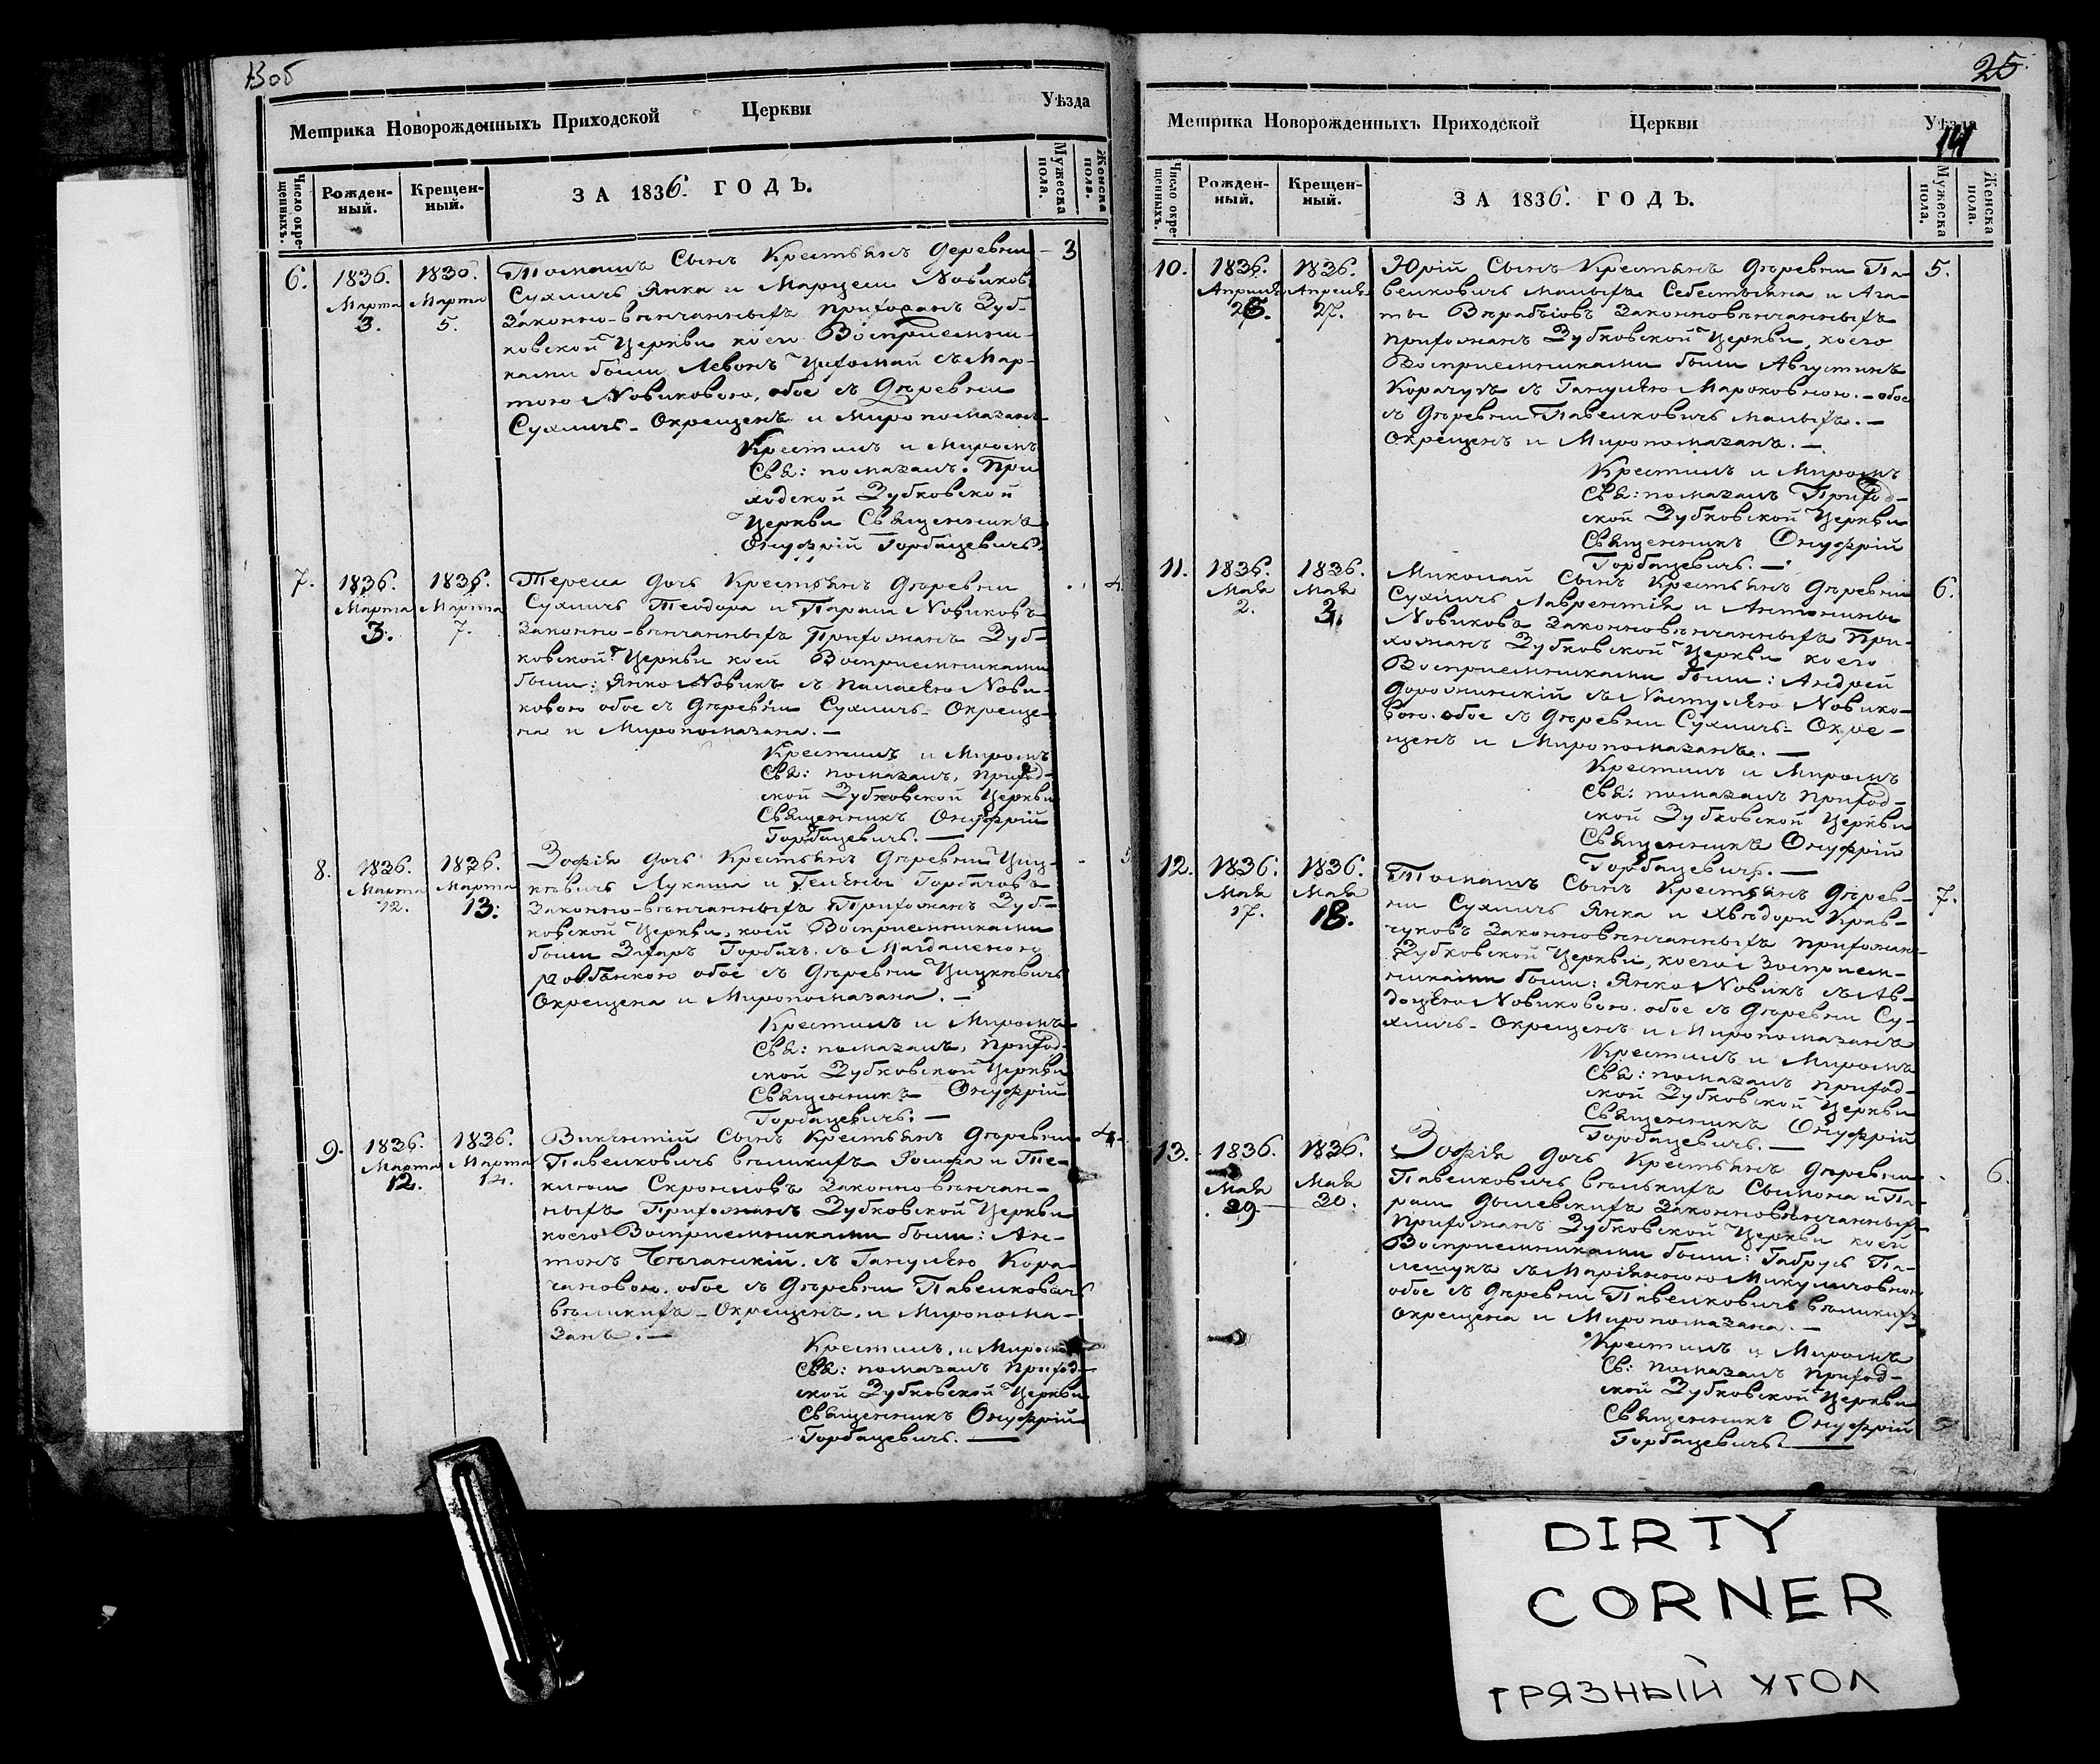 13об
Метрика Новорожденныхъ Приходской Церкви Уѣзда
Число окрещенныхъ.
Рожденный.
Крещенный.
ЗА 1836. ГОДЪ.
Мужеска пола.
Женска пола.
6. 1836. Марта 3. 1836. Марта 5.
Томашъ Сынъ Крестьянъ Деревни 3
Сухличъ Янка и Марцели Новиковъ
Законно-вѣнчанныхъ прихожанъ Зуб-
ковской Церкви коего Воспріемни-
ками были Левонъ Цихомай съ Мар-
тою Новиковою, обое съ Дѣревни
Сухличъ - Окрещенъ и Миропомазанъ
Крестилъ и Миромъ
Свя: помазалъ. При
ходской Зубковской
Церкви Священникъ
Онуфрій Горбацевичъ.
7. 1836. Марта 3. 1836. Марта 7.
Тереса дочь Крестьянъ Дѣревни 4.
Сухличъ Теодора и Параси Новиковъ
Законно-вѣнчанныхъ Прихожанъ Зуб-
ковской Церкви коей Воспріемниками
были: Янко Новикъ съ Паласею Нови-
ковою обое съ Дѣревни Сухличъ - Окреще-
на и Миропомазана. —
Крестилъ и Миромъ
Свя: помазалъ, приход-
ской Зубковской Церкви
Священникъ Онуфрій
Горбацевичъ. —
8. 1836. Марта 12. 1836. Марта 13.
Зофія дочь Крестьянъ Дѣревни Циц- 5
кевичъ Лукаша и Гелены Горбачовъ
Законно-вѣнчанныхъ Прихожанъ Зуб-
ковской Церкви, коей Воспріемниками
были Захаръ Горбачъ съ Магдаленою
обое съ Дѣревни Цицкевичъ
Окрещена и Миропомазана. —
Крестилъ и Миромъ
Свя: помазалъ, приход-
ской Зубковской Церкви
Священникъ Онуфрій
Горбацевичъ. —
9. 1836. Марта 12. 1836. Марта 14.
Викентій Сынъ Крестьянъ Дѣревни 4.
Павелковичъ великихъ и Те-
клюши Законно вѣнчан-
ныхъ Прихожанъ Зубковской Церкви
коего Воспріемниками были: Ан-
тонъ съ Ганулею Кора-
чановою. обое съ Дѣревни Павелковичъ
великихъ - Окрещенъ, и Миропома-
занъ. —
Крестилъ, и Миромъ
Свя: помазалъ Приход-
ской Зубковской Церкви
Священникъ Онуфрій
Горбацевичъ. —
25
Метрика Новорожденныхъ Приходской Церкви Уѣзда
14
Число окрещенныхъ.
Рожденный.
Крещенный.
ЗА 1836. ГОДЪ.
Мужеска пола.
Женска пола.
10. 1836. Апрѣля 1836. Апрѣля 27.
Юрій Сынъ Крестьянъ Дѣревни Па- 5.
велковичъ малыхъ Себестыяна и Ага-
ты Вѣрабьіовъ Законновѣнчанныхъ
прихожанъ Зубковской Церкви, коего
Воспріемниками были Августинъ
Корачунъ съ Ганулею Мароковною. - обое
съ Дѣревни Павелковичъ малыхъ. —
Окрещенъ и Миропомазанъ. —
Крестилъ и Миромъ
Свя: помазалъ Приход-
ской Зубковской Церкви
Священникъ Онуфрій
Горбацевичъ. —
11. 1836. Мая 2. 1836. Мая 3.
Миколай Сынъ Крестьянъ Дѣревни 6.
Сухличъ Лаврентія и Антонины
Новиковъ Законновѣнчанныхъ При-
хожанъ Зубковской Церкви коего
Воспріемниками были: Андрей
съ Настулею Новико-
вою. обое съ Дѣревни Сухличъ - Окре-
щенъ и Миропомазанъ. —
Крестилъ и Миромъ
Свя: помазалъ приход-
ской Зубковской Церкви
Священникъ Онуфрій
Горбацевичъ. —
12. 1836. Мая 17. 1836. Мая 18.
Томашъ Сынъ Крестьянъ Дѣрев- 7.
ни Сухличъ Янка и Хведори Крав-
чуковъ Законновѣнчанныхъ прихожанъ
Зубковской Церкви, коего Воспріем-
никами были: Янко Новикъ съ Ав-
доцею Новиковою. обое съ Дѣревни Су-
хличъ - Окрещенъ и Миропомазанъ
Крестилъ и Миромъ
Свя: помазалъ приход-
ской Зубковской Церкви
Священникъ Онуфрій
Горбацевичъ. —
13. 1836. Мая 29 1836. Мая 30.
Зофія дочь Крестьянъ Дѣревни 6.
Павелковичъ великихъ Сымона и Па-
раси Законновѣнчанныхъ
Прихожанъ Зубковской Церкви коей
Воспріемниками были: Габрусь Па-
лешукъ съ Маріянною Микуличовною
обое съ Дѣревни Павелковичъ великихъ
Окрещена и Миропомазана. —
Крестилъ и Миромъ
Св: помазалъ приход-
ской Зубковской Церкви
Священникъ Онуфрій
Горбацевичъ. —
DIRTY
CORNER
ГРЯЗНЫЙ УГОЛ